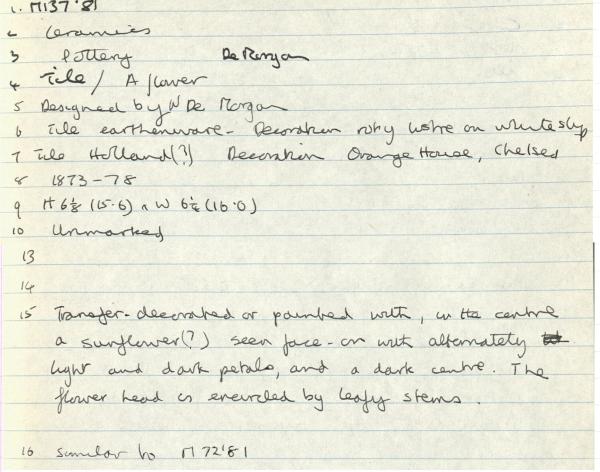 1. M137'81
2 Ceramics
3 Pottery De Morgan
4 Tile / A flower
5 Designed by W De Morgan
6 Tile earthenware - Decoration ruby lustre on white slip
7 Tile Holland (?) Decoration Orange House, Chelsea
8 1873-78
9 H 6⅛ (15.6) x W 6¼ (16.0)
10 Unmarked
13
14
15 Transfer-decorated or painted with, in the centre
a sunflower (?) seen face-on with alternately
light and dark petals, and a dark centre. The
flower head is encircled by leafy stems.
16 Similar to M72'81